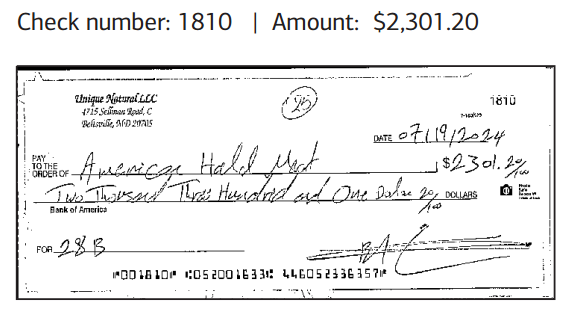 Check number: 1810 | Amount: $2,301.20
Unique Natural LLC
4715 Sellman Road, C
Beltsville, MD 20705
25
1810
DATE 07/19/2024
PAY TO THE ORDER OF American Halal Meat $2301.20/100
Two Thousand Three Hundrid and One Dolar 20/100 DOLLARS
Bank of America
FOR 28 B
⑈001810⑈ ⑆052001633⑆ 446052336357⑈